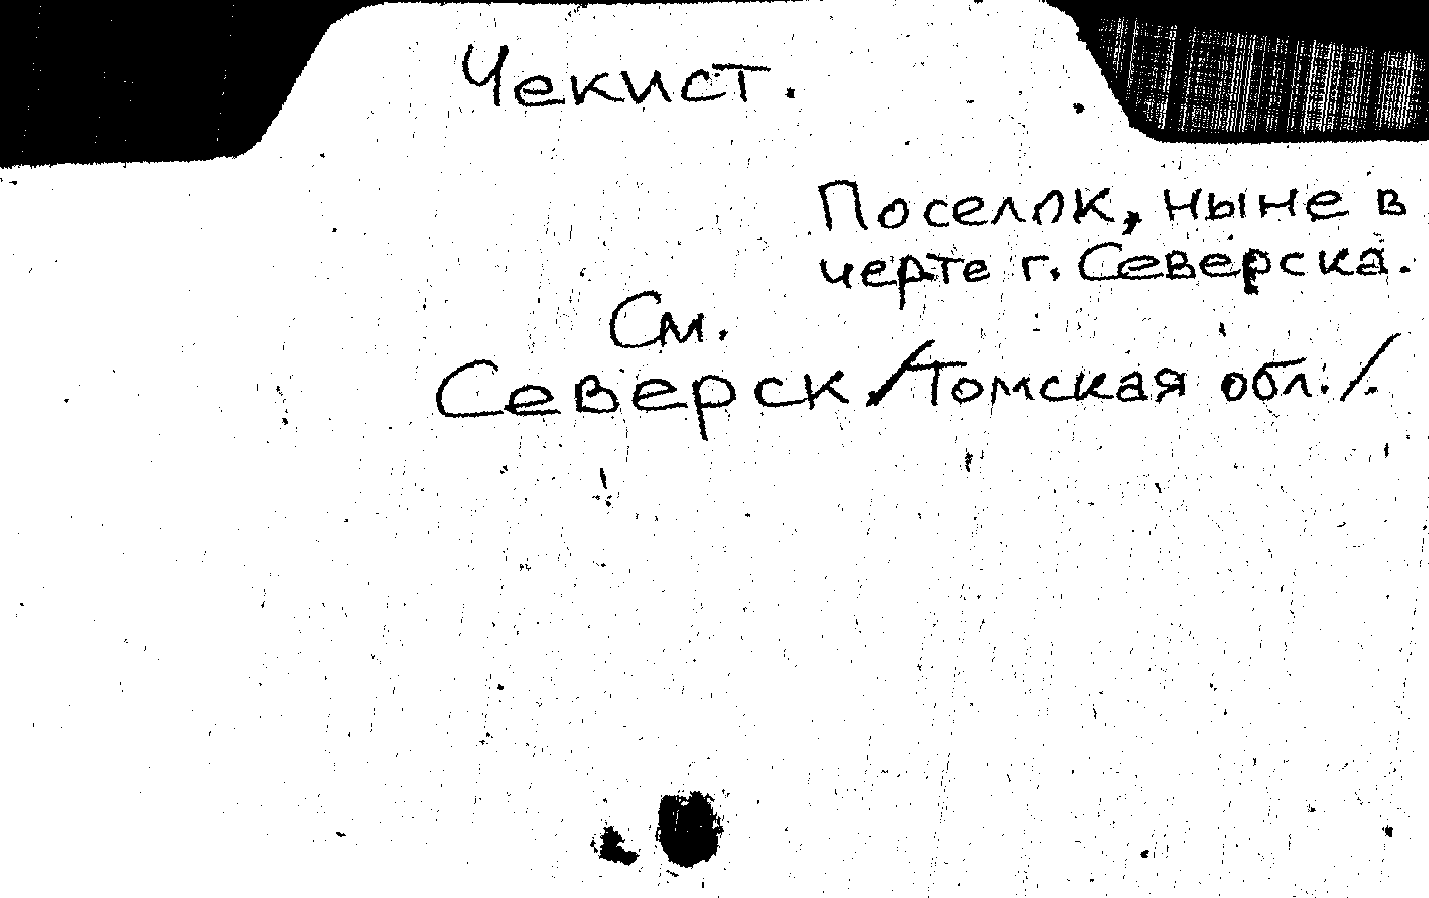 Чекист.
Поселок, ныне в
черте г. Северска.
См.
Северск /Томская обл./.